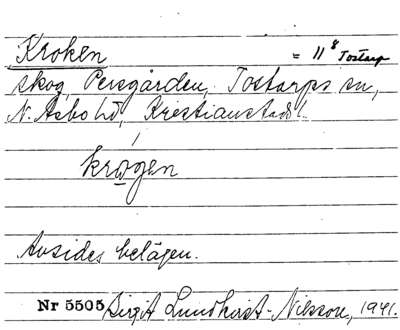 Kroken = 11⁸ Tostarp
skog, Persgården, Tostarps sn,
N. Åsbo hd, Kristianstads l.
krogen
Avsides belägen.
Nr 5505 Birgit Lundkvist-Nilsson, 1941.